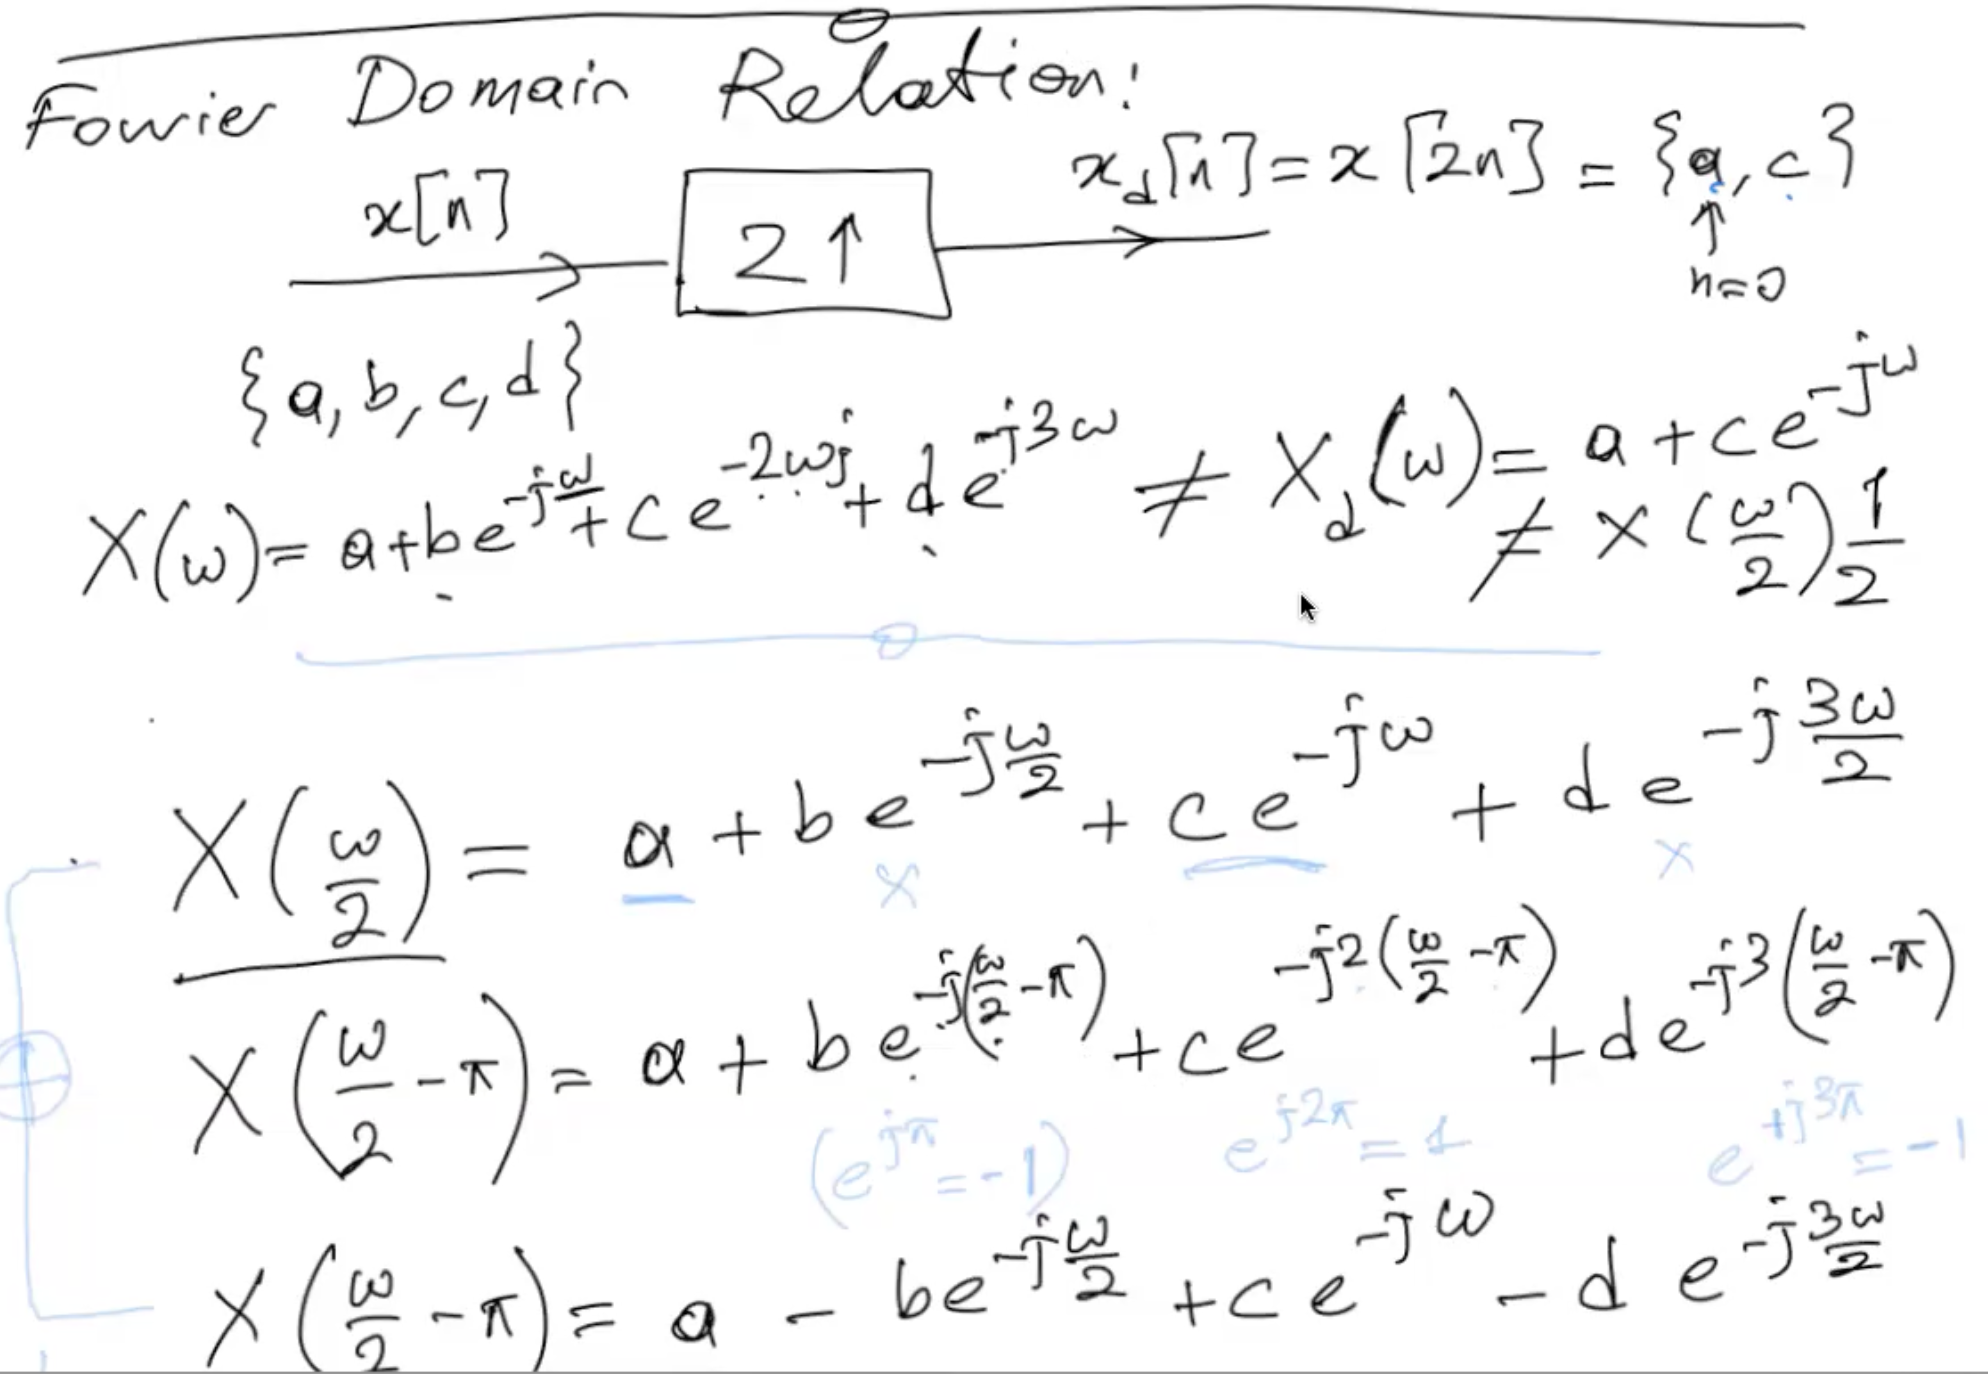 Fourier Domain Relation:
x[n] 2↑ x_d[n] = x[2n] = {a, c}
↑
n=0
{a, b, c, d}
X(ω) = a + be^{-jω} + ce^{-2ωj} + de^{-j3ω} ≠ X_d(ω) = a + ce^{-jω}
≠ X(ω/2) 1/2
X(ω/2) = a + be^{-jω/2} + ce^{-jω} + de^{-j3ω/2}
x x
X(ω/2 - π) = a + be^{-j(ω/2 - π)} + ce^{-j2(ω/2 - π)} + de^{-j3(ω/2 - π)}
(e^{jπ} = -1) e^{j2π} = 1 e^{+j3π} = -1
X(ω/2 - π) = a - be^{-jω/2} + ce^{-jω} - de^{-j3ω/2}